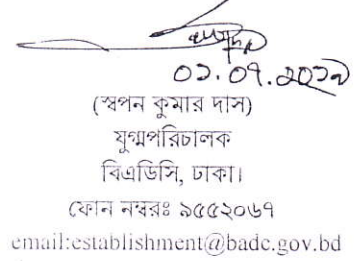 ০১.০৭.২০১৯
(স্বপন কুমার দাস)
যুগ্মপরিচালক
বিএডিসি, ঢাকা।
ফোন নম্বরঃ ৯৫৫২০৬৭
email:establishment@badc.gov.bd